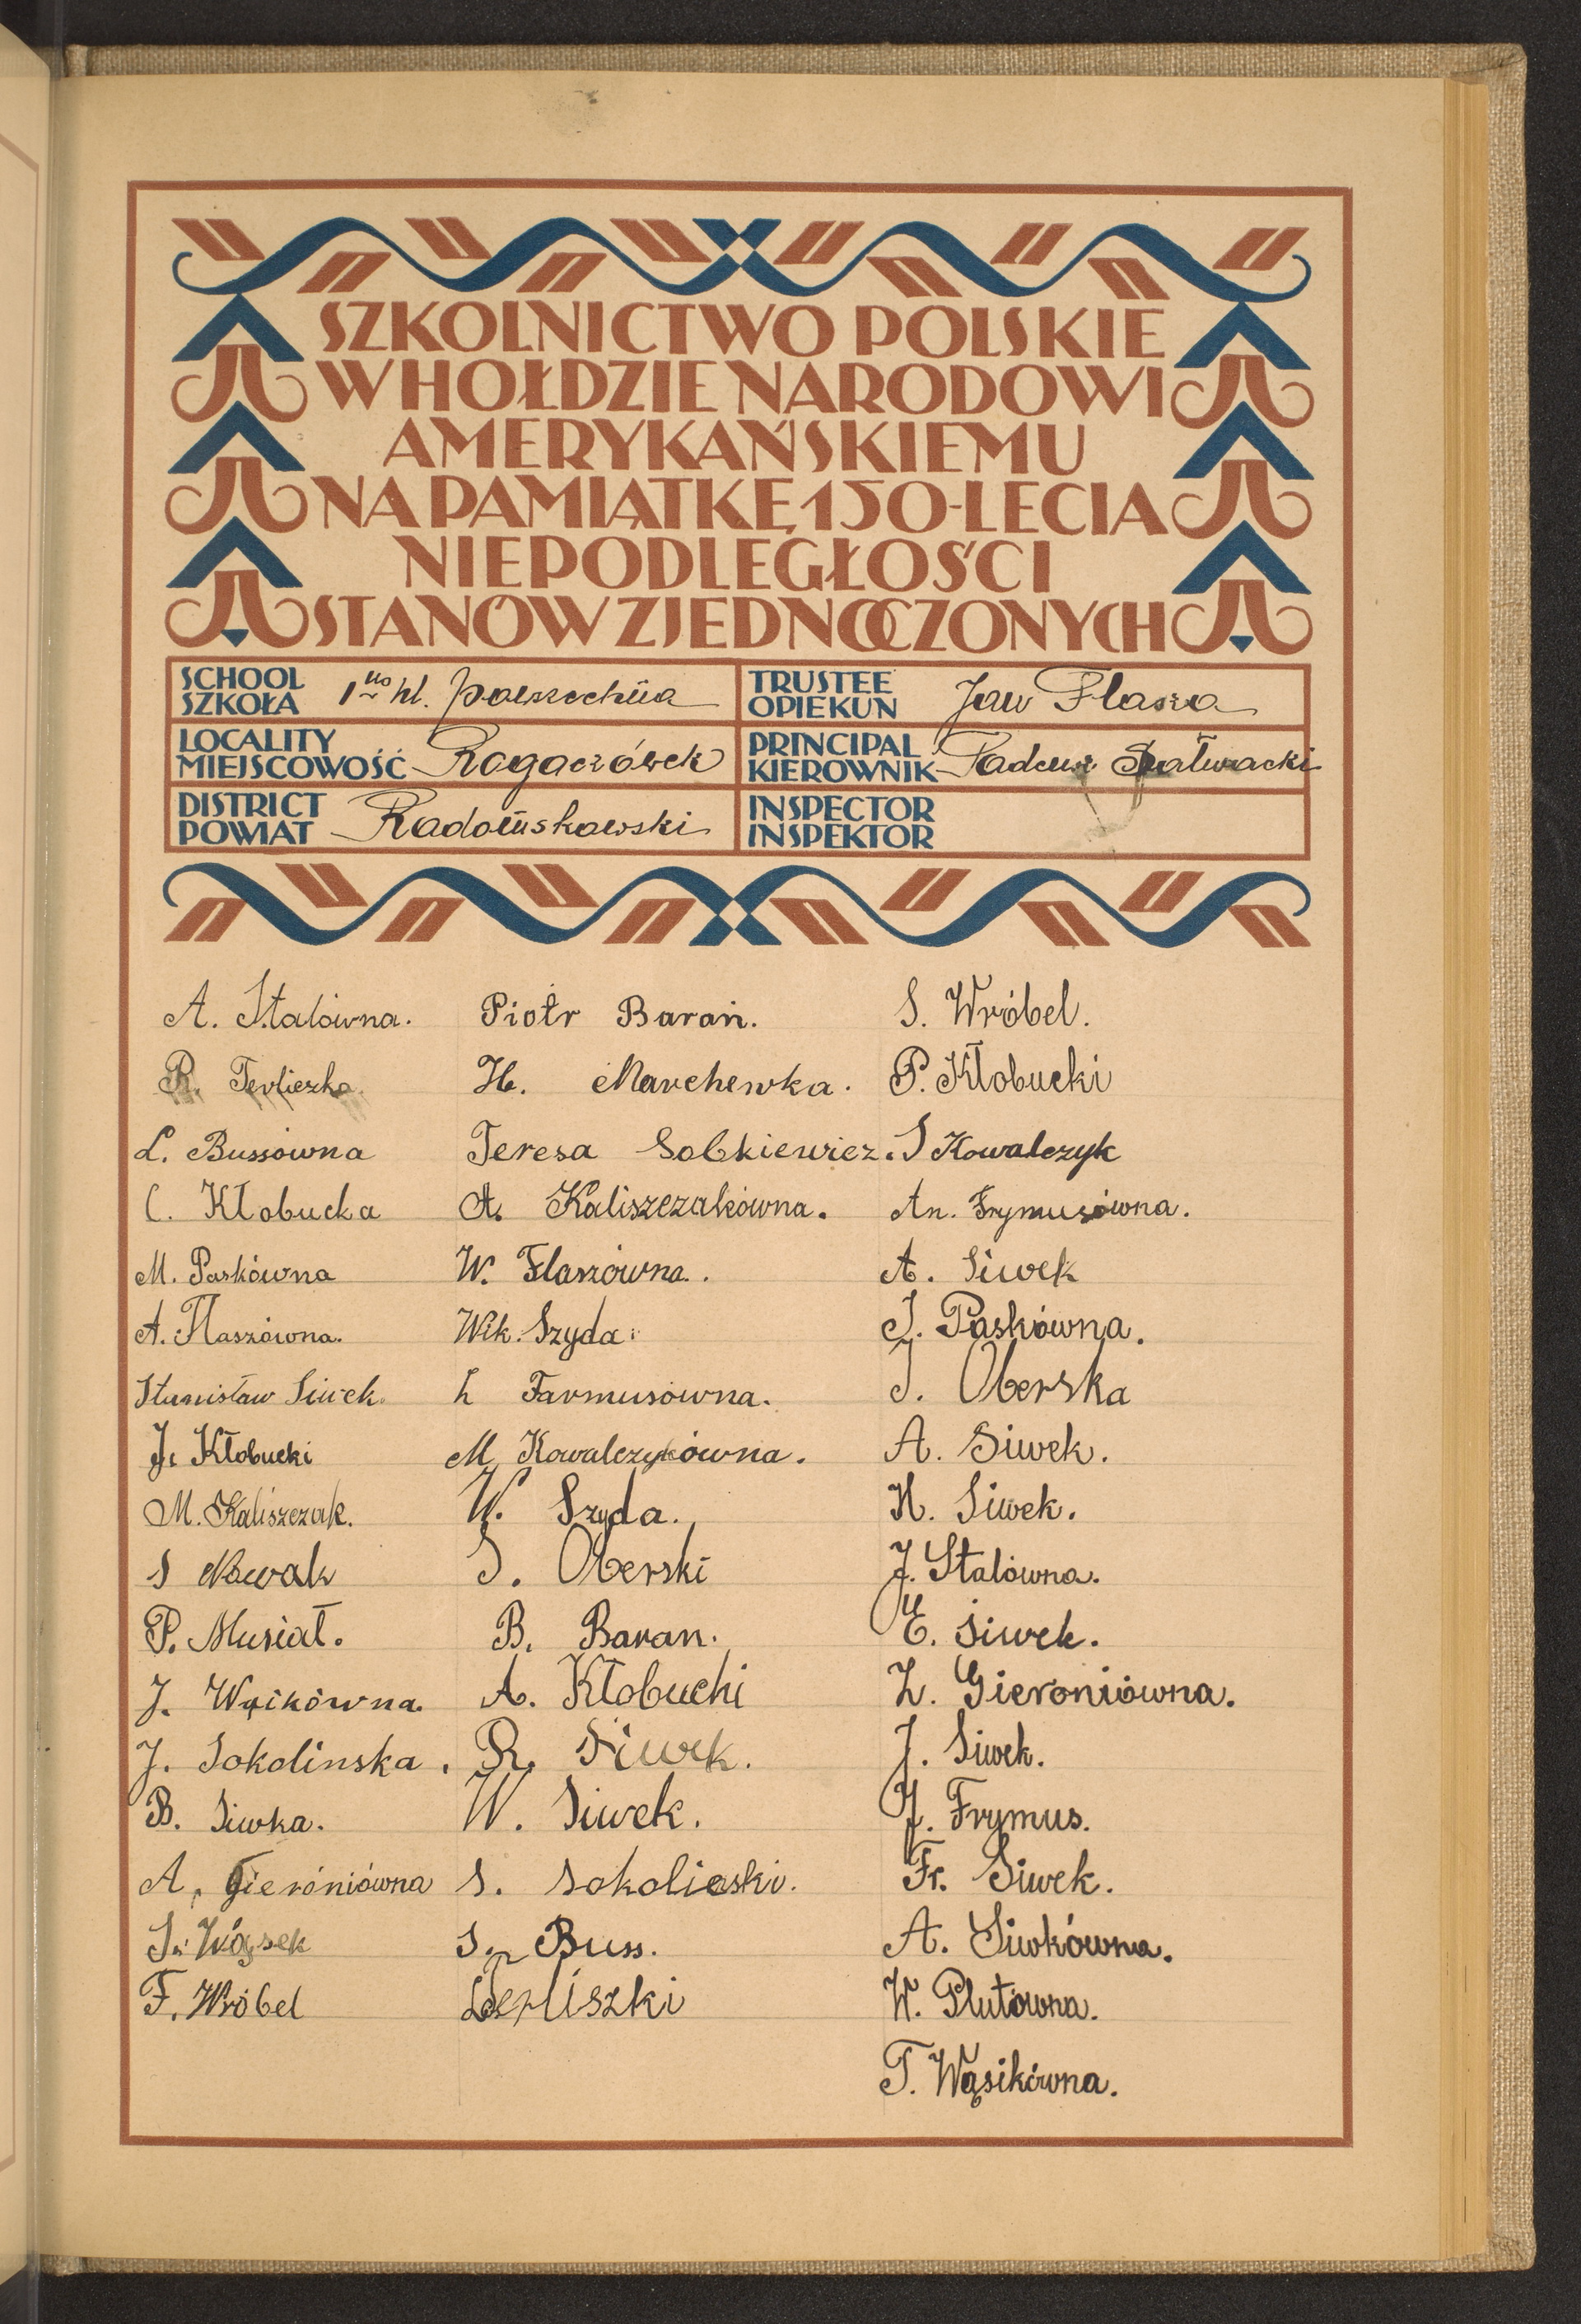 SZKOLNICTWO POLSKIE
W HOŁDZIE NARODOWI
AMERYKAŃSKIEMU
NA PAMIĄTKĘ 150-LECIA
NIEPODLEGŁOŚCI
STANÓW ZJEDNOCZONYCH
SCHOOL
SZKOŁA 1 kl. powszechna
TRUSTEE
OPIEKUN Jan Flasza
LOCALITY
MIEJSCOWOŚĆ Rogaczówek
PRINCIPAL
KIEROWNIK Tadeusz
DISTRICT
POWIAT Radomskowski
INSPECTOR
INSPEKTOR
A. Stalówna.
R. Terliczka
L. Bussówna
C. Kłobucka
M. Paskówna
A. Flaszówna.
Stanisław Siwek
J. Kłobucki
M. Kaliszczak.
S Nowak
P. Musiał.
J. Wąsikówna.
J. Sokolinska.
B. Siwka.
A. Gieróniówna
S. Wąsek
F. Wróbel
Piotr Barań.
H. Marchewka.
Teresa Sobkiewicz.
A. Kaliszczakówna.
W. Flaszówna.
Wik. Szyda.
L Farmusówna.
M. Kowalczykówna.
W. Szyda.
S. Oberski
B. Baran.
A. Kłobucki
R. Siwek.
W. Siwek.
S. Sokolinski.
S. Buss.
S. Wróbel.
P. Kłobucki
S Kowalczyk
An. Frymusówna.
A. Siwek
J. Paskówna.
J. Oberska
A. Siwek.
H. Siwek.
J. Stalówna.
E. Siwek.
Z. Gieroniówna.
J. Siwek.
J. Frymus.
Fr. Siwek.
A. Siwkówna.
W. Plutówna.
T. Wąsikówna.